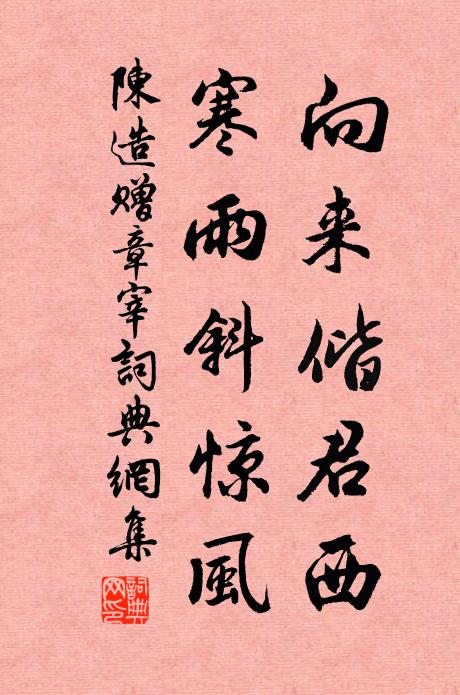 向来偕君西
寒雨斜惊風
陳造贈章宰詞典網集
詞典網印